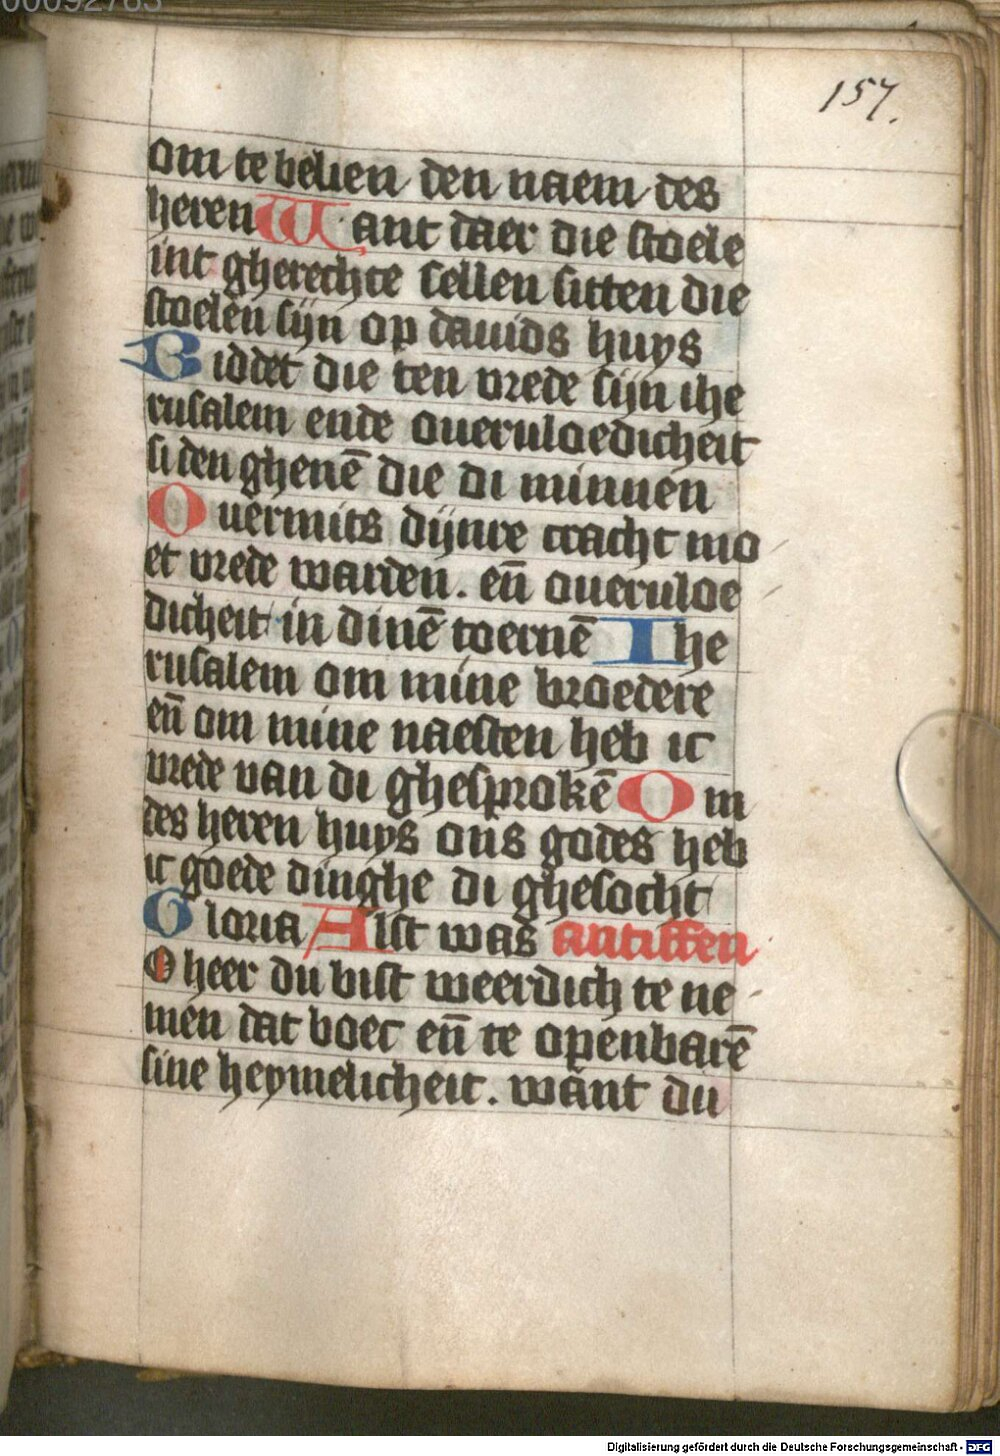 00092783
157.
om te belien den naem des
heren Want daer die stoele
int gherechte sellen sitten die
stoelen sijn op dauids huys
Biddet die ten vrede sijn ihe
rusalem ende oueruloedicheit
si den ghenē die di minnen
Ouermits dijnre cracht mo
et vrede warden. en̄ oueruloe
dicheit in dinē toernē Ihe
rusalem om mine broedere
en̄ om mine naesten heb ic
vrede van di ghesprokē Om
des heren huys ons godes heb
ic goede dinghe di ghesocht
Gloria Alst was antiffen
O heer du bist weerdich te ne
men dat boec en̄ te openbarē
sine heymelicheit. want du
Digitalisierung gefördert durch die Deutsche Forschungsgemeinschaft - DFG